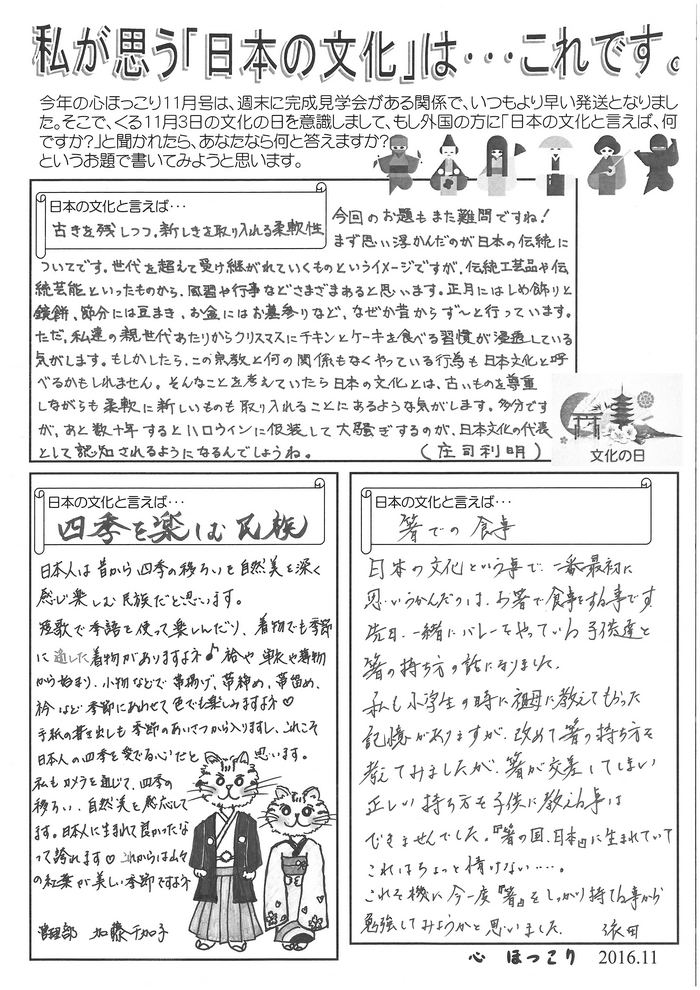 私が思う「日本の文化」は・・・これです。
今年の心ほっこり11月号は、週末に完成見学会がある関係で、いつもより早い発送となりまし
た。そこで、くる11月3日の文化の日を意識しまして、もし外国の方に「日本の文化と言えば、何
ですか？」と聞かれたら、あなたなら何と答えますか？
というお題で書いてみようと思います。
日本の文化と言えば・・・
古きを残しつつ、新しきを取り入れる柔軟性
今回のお題もまた難問ですね！
まず思い浮かんだのが日本の伝統に
ついてです。世代を超えて受け継がれていくものというイメージですが、伝統工芸品や伝
統芸能といったものから、風習や行事などさまざまあると思います。正月にはしめ飾りと
鏡餅、節分には豆まき、お盆にはお墓参りなど、なぜか昔からず〜と行っています。
ただ、私達の親世代あたりからクリスマスにチキンとケーキを食べる習慣が浸透している
気がします。もしかしたら、この宗教と何の関係もなくやっている行為も日本文化と呼
べるかもしれません。そんなことを考えていたら日本の文化とは、古いものを尊重
しながらも柔軟に新しいものも取り入れることにあるような気がします。多分です
が、あと数十年するとハロウィンに仮装して大騒ぎするのが、日本文化の代表
として認知されるようになるんでしょうね。
（庄司利明）
文化の日
日本の文化と言えば・・・
四季を楽しむ民族
日本人は昔から四季の移ろいを自然美を深く
感じ楽しむ民族だと思います。
短歌で季語を使って楽しんだり、着物でも季節
に適した着物がありますよネ♪袷や単衣や薄物
から始まり、小物などで帯揚げ、帯締め、帯留め、
衿など季節にあわせて色でも楽しみますよネ♡
手紙の書き出しも季節のあいさつから入りますし、これこそ
日本人の四季を愛でる心だと思います。
私もカメラを通じて、四季の
移ろい、自然美を感応して
ます。日本人に生まれて良かったな
って誇れます♡これからは山々
の紅葉が美しい季節ですよネ
管理部 加藤千加子
日本の文化と言えば・・・
箸での食事
日本の文化という事で、一番最初に
思いうかんだのは、お箸で食事をする事です
先日、一緒にバレーをやっている子供達と
箸の持ち方の話になりました。
私も小学生の時に祖母に教えてもらった
記憶がありますが、改めて箸の持ち方を
考えてみましたが、箸が交差してしまい
正しい持ち方を子供に教える事は
できませんでした。『箸の国、日本』に生まれていて
これはちょっと情けない・・・・。
これを機に今一度『箸』をしっかり持てる事から
勉強してみようかと思いました。
依田
心 ほっこり 2016.11